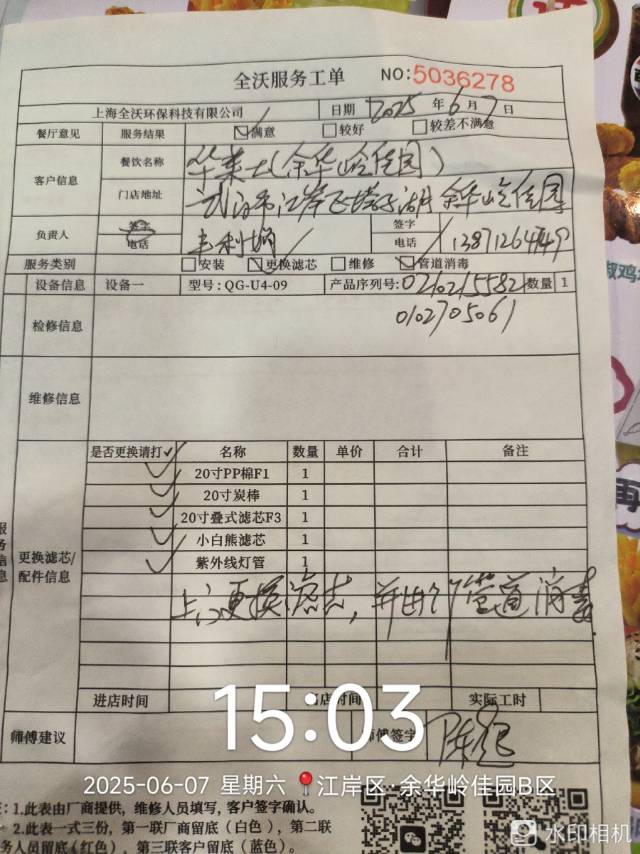 全沃服务工单 NO:5036278
上海全沃环保科技有限公司 日期 2025 年 6 月 7 日
餐厅意见 服务结果 ☑满意 □较好 □较差不满意
客户信息 餐饮名称 华莱士(余华岭佳园)
门店地址 武汉市江岸区塔子湖 余华岭佳园
负责人 签字 签字
电话 电话
服务类别 □安装 ☑更换滤芯 □维修 ☑管道消毒
设备信息 设备一 型号: QG-U4-09 产品序列号: 0210215582 数量 1
0102705061
检修信息
维修信息
是否更换请打✓ 名称 数量 单价 合计 备注
✓ 20寸PP棉F1 1
✓ 20寸炭棒 1
✓ 20寸叠式滤芯F3 1
✓ 小白熊滤芯 1
✓ 紫外线灯管 1
更换滤芯/
配件信息
上门更换滤芯,并进行管道消毒
进店时间 时间 实际工时
15:03
师傅建议 师傅签字
2025-06-07 星期六 江岸区·余华岭佳园B区
1.此表由厂商提供，维修人员填写，客户签字确认。
2.此表一式三份，第一联厂商留底（白色），第二联
务人员留底（红色），第三联客户留底（蓝色）。
水印相机